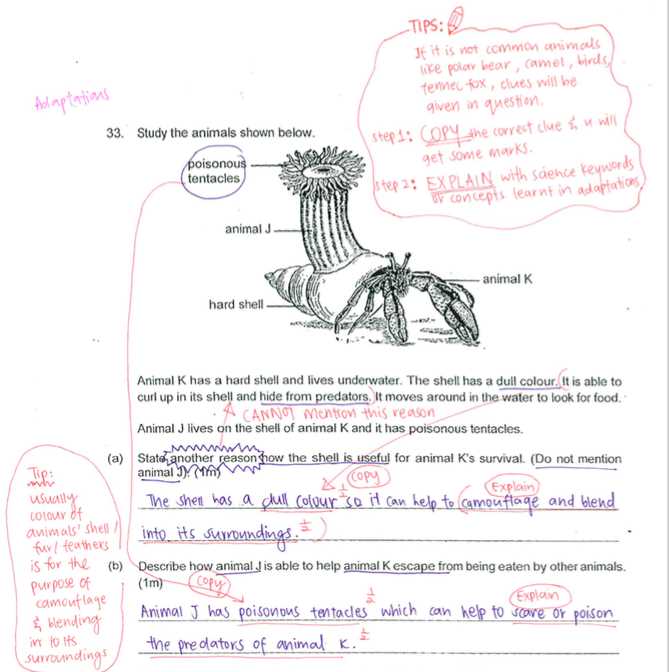 TIPS:
If it is not common animals
like polar bear, camel, birds,
fennec fox, clues will be
given in question.
step 1: COPY the correct clue & u will
get some marks.
step 2: EXPLAIN with science keywords
or concepts learnt in adaptations
Adaptations
33. Study the animals shown below.
poisonous
tentacles
animal J
animal K
hard shell
Animal K has a hard shell and lives underwater. The shell has a dull colour. It is able to
curl up in its shell and hide from predators. It moves around in the water to look for food.
CANNOT mention this reason
Animal J lives on the shell of animal K and it has poisonous tentacles.
(a) State another reason how the shell is useful for animal K's survival. (Do not mention
animal J). (1m)
copy
Explain
The shell has a dull colour ½ so it can help to camouflage and blend
into its surroundings. ½
(b) Describe how animal J is able to help animal K escape from being eaten by other animals.
(1m)
copy
Explain
Animal J has poisonous tentacles ½ which can help to scare or poison
the predators of animal K. ½
Tip:
usually
colour of
animals' shell/
fur/ feathers
is for the
purpose of
camouflage
& blending
in to its
surroundings